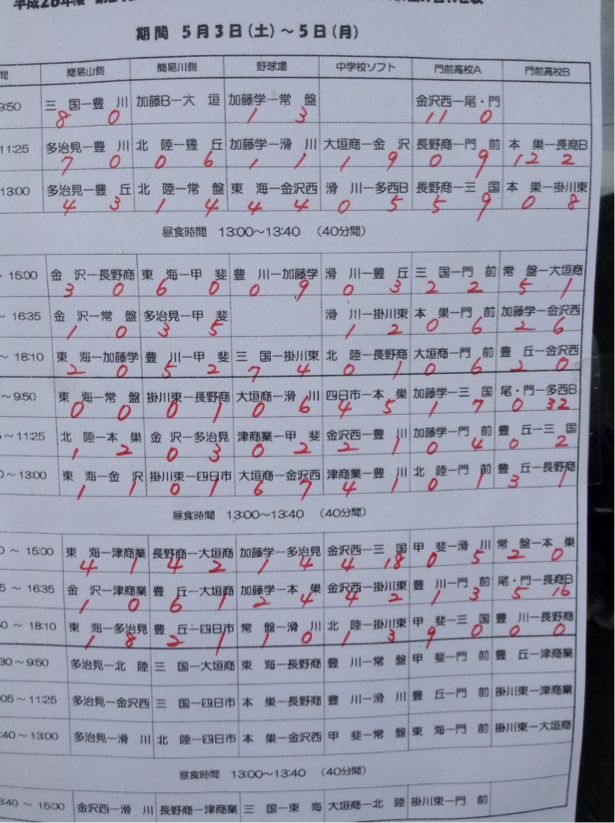 平成26年度
期間 5月3日(土)～5日(月)
間 簡易山側 簡易川側 野球場 中学校ソフト 門前高校A 門前高校B
9:50 三国ー豊川 加藤Bー大垣 加藤学ー常盤 金沢西ー尾・門
8 0 1 3 11 0
11:25 多治見ー豊川 北陸ー豊丘 加藤学ー滑川 大垣商ー金沢 長野商ー門前 本巣ー長商B
7 0 0 6 1 1 1 9 0 9 12 2
13:00 多治見ー豊丘 北陸ー常盤 東海ー金沢西 滑川ー多西B 長野商ー三国 本巣ー掛川東
4 3 1 4 4 4 0 5 5 9 0 8
昼食時間 13:00～13:40 (40分間)
～ 15:00 金沢ー長野商 東海ー甲斐 豊川ー加藤学 滑川ー豊丘 三国ー門前 常盤ー大垣商
3 0 6 0 0 9 0 3 2 2 5 1
～ 16:35 金沢ー常盤 多治見ー甲斐 滑川ー掛川東 本巣ー門前 加藤学ー金沢西
1 0 3 5 1 2 0 6 2 6
～ 18:10 東海ー加藤学 豊川ー甲斐 三国ー掛川東 北陸ー長野商 大垣商ー門前 豊丘ー金沢西
2 0 5 2 7 4 0 1 0 6 2 0
～ 9:50 東海ー常盤 掛川東ー長野商 大垣商ー滑川 四日市ー本巣 加藤学ー三国 尾・門ー多西B
0 0 0 1 0 6 4 5 1 7 0 32
～ 11:25 北陸ー本巣 金沢ー多治見 津商業ー甲斐 金沢西ー豊川 加藤学ー門前 豊丘ー三国
1 2 0 3 0 2 2 1 0 4 0 2
0 ～ 13:00 東海ー金沢 掛川東ー四日市 大垣商ー金沢西 津商業ー豊川 北陸ー門前 豊丘ー長野商
1 1 0 1 6 7 4 1 0 1 3 1
昼食時間 13:00～13:40 (40分間)
0 ～ 15:00 東海ー津商業 長野商ー大垣商 加藤学ー多治見 金沢西ー三国 甲斐ー滑川 常盤ー本巣
4 1 4 2 1 4 4 18 0 5 2 0
5 ～ 16:35 金沢ー津商業 豊丘ー大垣商 加藤学ー本巣 金沢西ー掛川東 豊川ー門前 尾・門ー長商B
1 0 6 1 2 4 4 2 1 3 5 16
0 ～ 18:10 東海ー多治見 豊丘ー四日市 常盤ー滑川 北陸ー掛川東 甲斐ー三国 豊川ー長野商
1 8 2 1 1 0 1 3 9 0 0 0
30 ～ 9:50 多治見ー北陸 三国ー大垣商 東海ー長野商 豊川ー常盤 甲斐ー門前 豊丘ー津商業
05 ～ 11:25 多治見ー金沢西 三国ー四日市 本巣ー長野商 豊川ー滑川 豊丘ー門前 掛川東ー津商業
:40 ～ 13:00 多治見ー滑川 北陸ー四日市 本巣ー金沢西 甲斐ー常盤 東海ー門前 掛川東ー大垣商
昼食時間 13:00～13:40 (40分間)
3:40 ～ 15:00 金沢西ー滑川 長野商ー津商業 三国ー東海 大垣商ー北陸 掛川東ー門前